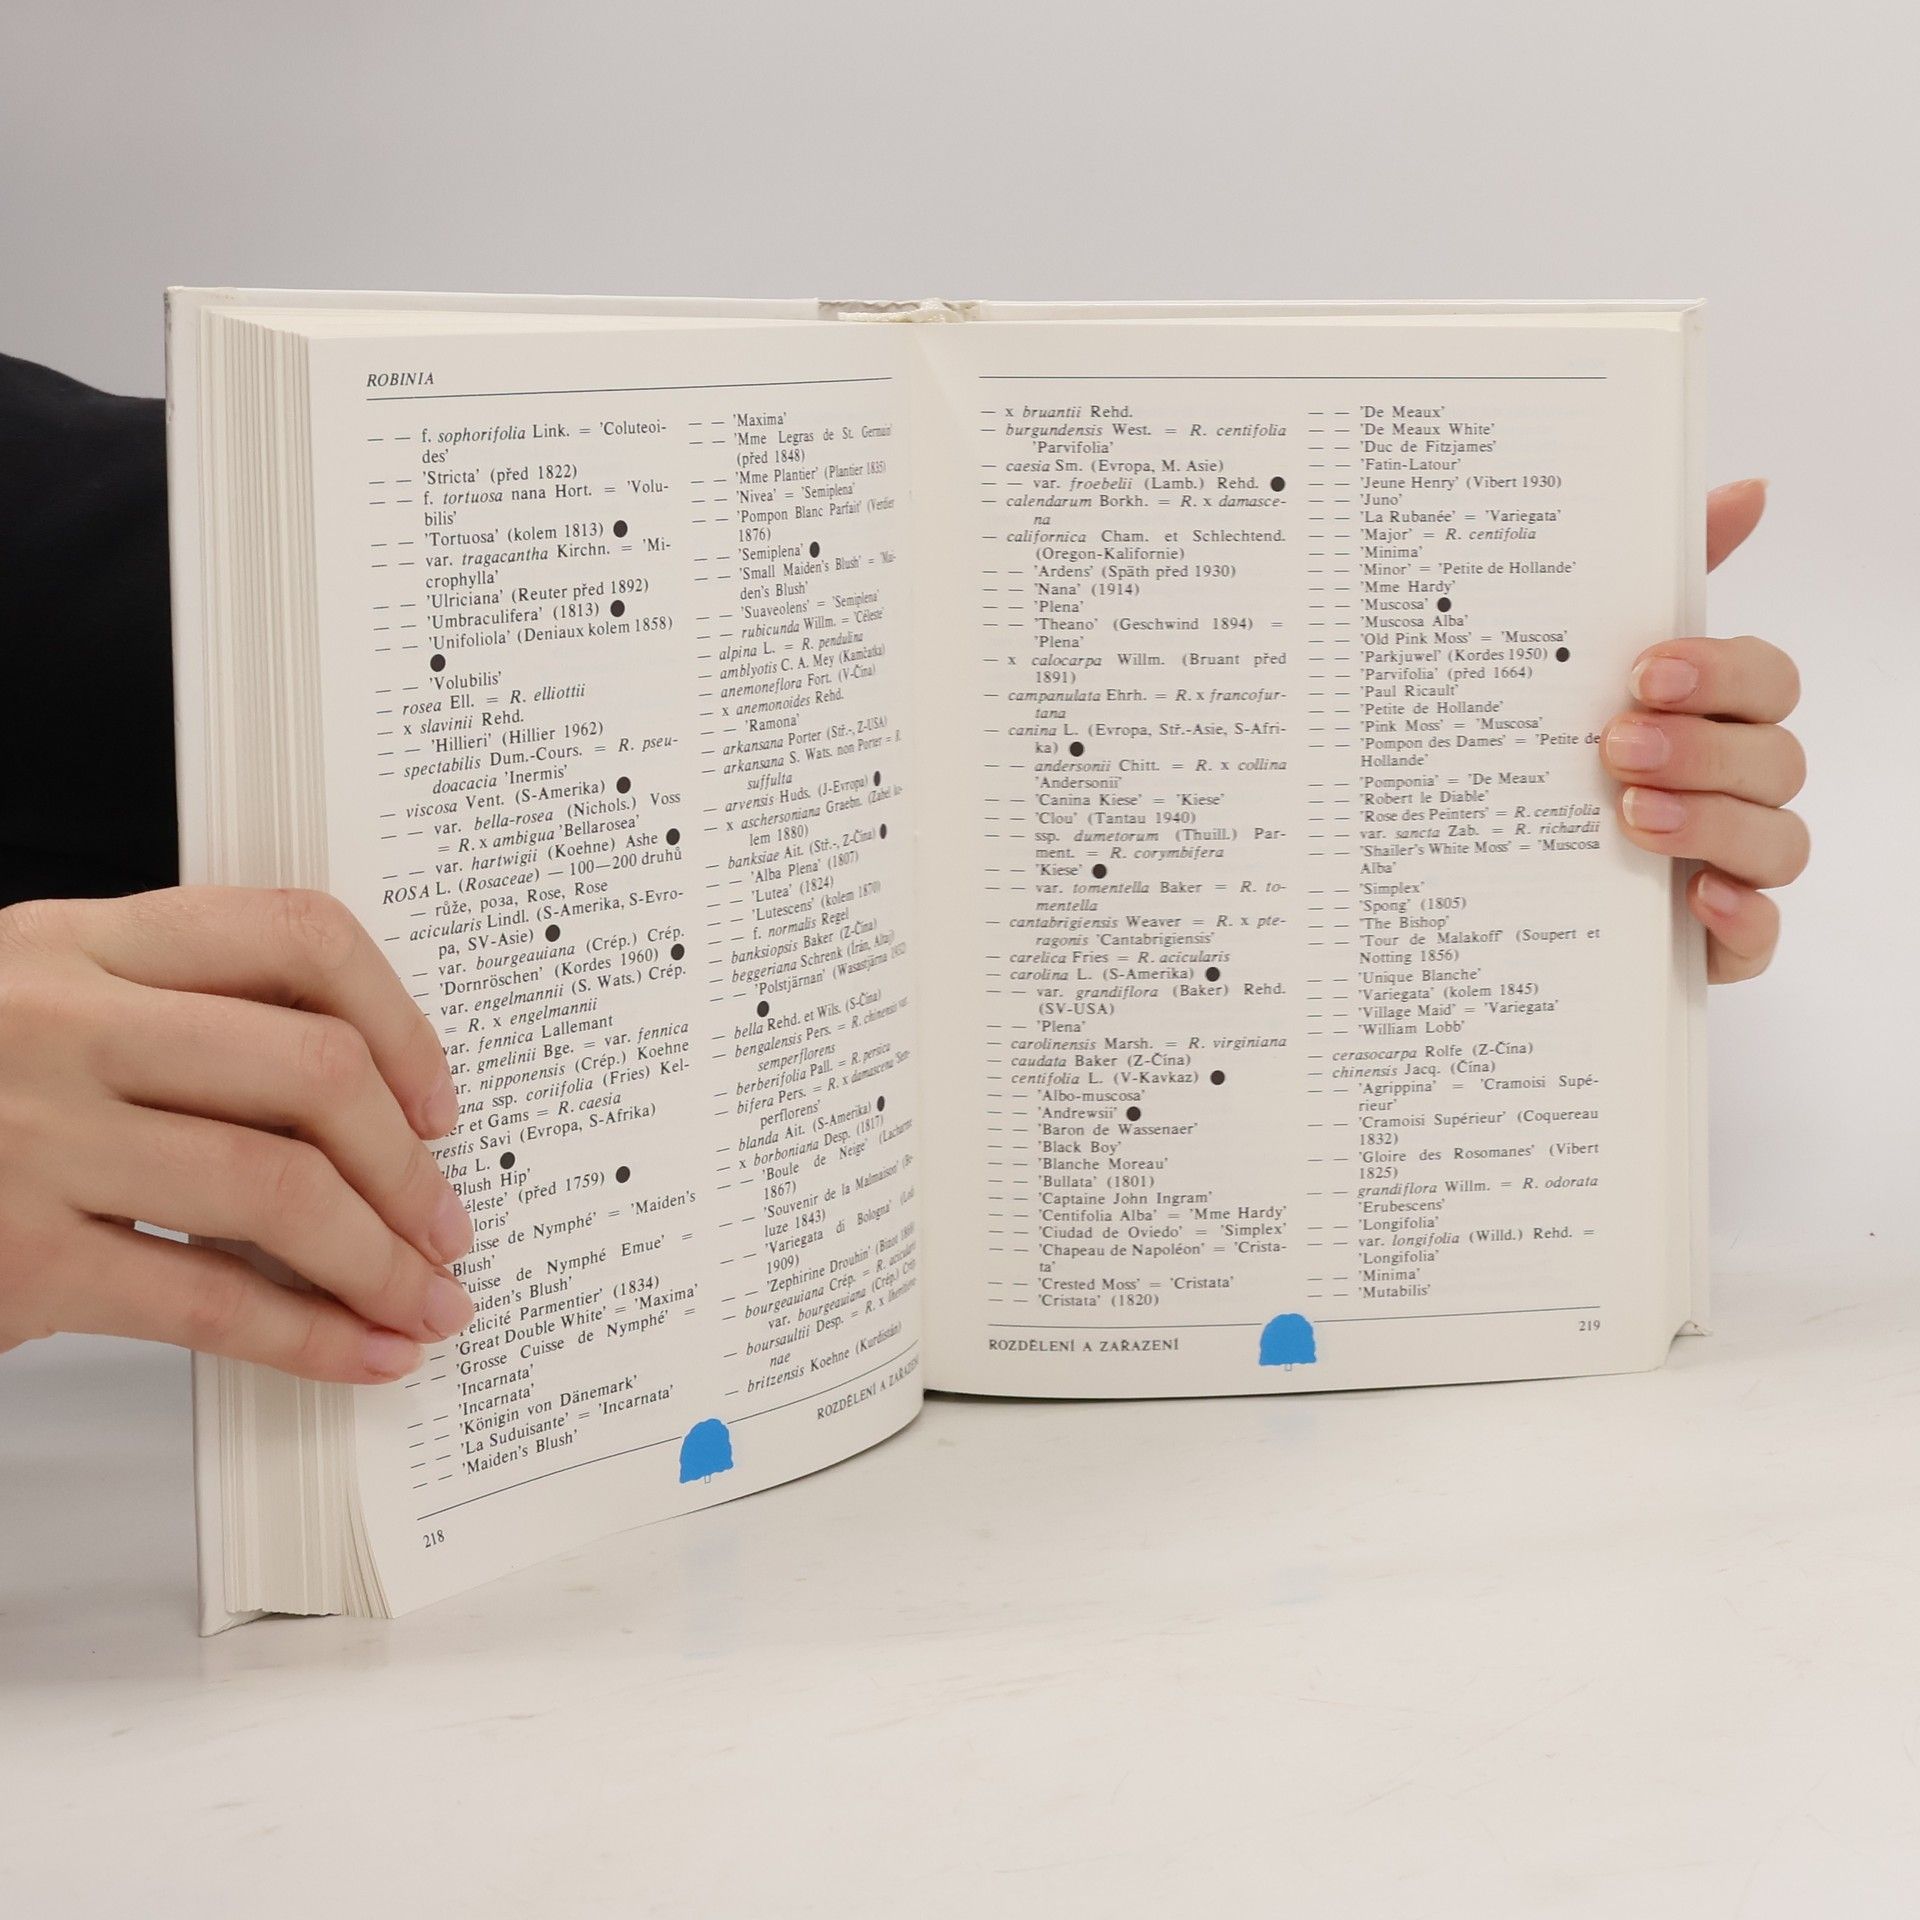 ROBINIA
— — f. sophorifolia Link. = 'Coluteoi-
des'
— — 'Stricta' (před 1822)
— — f. tortuosa nana Hort. = 'Volu-
bilis'
— — 'Tortuosa' (kolem 1813) ●
— — var. tragacantha Kirchn. = 'Mi-
crophylla'
— — 'Ulriciana' (Reuter před 1892)
— — 'Umbraculifera' (1813) ●
— — 'Unifoliola' (Deniaux kolem 1858)
●
— — 'Volubilis'
— rosea Ell. = R. elliottii
— x slavinii Rehd.
— — 'Hillieri' (Hillier 1962)
— spectabilis Dum.-Cours. = R. pseu-
doacacia 'Inermis'
— viscosa Vent. (S-Amerika) ●
— — var. bella-rosea (Nichols.) Voss
= R. x ambigua 'Bellarosea'
— — var. hartwigii (Koehne) Ashe ●
ROSA L. (Rosaceae) — 100—200 druhů
— růže, роза, Rose, Rose
— acicularis Lindl. (S-Amerika, S-Evro-
pa, SV-Asie) ●
— — var. bourgeauiana (Crép.) Crép.
— 'Dornröschen' (Kordes 1960) ●
— var. engelmannii (S. Wats.) Crép.
= R. x engelmannii
var. fennica Lallemant
ar. gmelinii Bge. = var. fennica
ar. nipponensis (Crép.) Koehne
ana ssp. coriifolia (Fries) Kel-
er et Gams = R. caesia
restis Savi (Evropa, S-Afrika)
lba L. ●
Blush Hip'
éleste' (před 1759) ●
loris'
uisse de Nymphé' = 'Maiden's
Blush'
Cuisse de Nymphé Emue' =
aiden's Blush'
Félicité Parmentier' (1834)
— 'Great Double White' = 'Maxima'
— — 'Grosse Cuisse de Nymphé' =
'Incarnata'
— — 'Incarnata'
— — 'Königin von Dänemark'
— — 'La Suduisante' = 'Incarnata'
— — 'Maiden's Blush'
— — 'Maxima'
— — 'Mme Legras de St. Germain'
(před 1848)
— — 'Mme Plantier' (Plantier 1835)
— — 'Nivea' = 'Semiplena'
— — 'Pompon Blanc Parfait' (Verdier
1876)
— — 'Semiplena' ●
— — 'Small Maiden's Blush' = 'Mai-
den's Blush'
— — 'Suaveolens' = 'Semiplena'
— — rubicunda Willm. = 'Céleste'
— alpina L. = R. pendulina
— amblyotis C. A. Mey (Kamčatka)
— anemoneflora Fort. (V-Čína)
— x anemonoides Rehd.
— — 'Ramona'
— arkansana Porter (Stř.-, Z-USA)
— arkansana S. Wats. non Porter = R.
suffulta
— arvensis Huds. (J-Evropa) ●
— x aschersoniana Graebn. (Zabel ko-
lem 1880)
— banksiae Ait. (Stř.-, Z-Čína) ●
— — 'Alba Plena' (1807)
— — 'Lutea' (1824)
— — 'Lutescens' (kolem 1870)
— — f. normalis Regel
— banksiopsis Baker (Z-Čína)
— beggeriana Schrenk (Írán, Altaj)
— — 'Polstjärnan' (Wasastjärna 1932)
●
— bella Rehd. et Wils. (S-Čína)
— bengalensis Pers. = R. chinensis var.
semperflorens
— berberifolia Pall. = R. persica
— bifera Pers. = R. x damascena 'Sem-
perflorens'
— blanda Ait. (S-Amerika) ●
— x borboniana Desp. (1817)
— — 'Boule de Neige' (Lacharme
1867)
— — 'Souvenir de la Malmaison' (Be-
luze 1843)
— — 'Variegata di Bologna' (Lodi
1909)
— — 'Zephirine Drouhin' (Bizot 1868)
— bourgeauiana Crép. = R. acicularis
var. bourgeauiana (Crép.) Crép.
— boursaultii Desp. = R. x lheritiera-
nae
— britzensis Koehne (Kurdistán)
ROZDĚLENÍ A ZAŘAZENÍ
218
— x bruantii Rehd.
— burgundensis West. = R. centifolia
'Parvifolia'
— caesia Sm. (Evropa, M. Asie)
— — var. froebelii (Lamb.) Rehd. ●
— calendarum Borkh. = R. x damasce-
na
— californica Cham. et Schlechtend.
(Oregon-Kalifornie)
— — 'Ardens' (Späth před 1930)
— — 'Nana' (1914)
— — 'Plena'
— — 'Theano' (Geschwind 1894) =
'Plena'
— x calocarpa Willm. (Bruant před
1891)
— campanulata Ehrh. = R. x francofur-
tana
— canina L. (Evropa, Stř.-Asie, S-Afri-
ka) ●
— — andersonii Chitt. = R. x collina
'Andersonii'
— — 'Canina Kiese' = 'Kiese'
— — 'Clou' (Tantau 1940)
— — ssp. dumetorum (Thuill.) Par-
ment. = R. corymbifera
— — 'Kiese' ●
— — var. tomentella Baker = R. to-
mentella
— cantabrigiensis Weaver = R. x pte-
ragonis 'Cantabrigiensis'
— carelica Fries = R. acicularis
— carolina L. (S-Amerika) ●
— — var. grandiflora (Baker) Rehd.
(SV-USA)
— — 'Plena'
— carolinensis Marsh. = R. virginiana
— caudata Baker (Z-Čína)
— centifolia L. (V-Kavkaz) ●
— — 'Albo-muscosa'
— — 'Andrewsii' ●
— — 'Baron de Wassenaer'
— — 'Black Boy'
— — 'Blanche Moreau'
— — 'Bullata' (1801)
— — 'Captaine John Ingram'
— — 'Centifolia Alba' = 'Mme Hardy'
— — 'Ciudad de Oviedo' = 'Simplex'
— — 'Chapeau de Napoléon' = 'Crista-
ta'
— — 'Crested Moss' = 'Cristata'
— — 'Cristata' (1820)
— — 'De Meaux'
— — 'De Meaux White'
— — 'Duc de Fitzjames'
— — 'Fatin-Latour'
— — 'Jeune Henry' (Vibert 1930)
— — 'Juno'
— — 'La Rubanée' = 'Variegata'
— — 'Major' = R. centifolia
— — 'Minima'
— — 'Minor' = 'Petite de Hollande'
— — 'Mme Hardy'
— — 'Muscosa' ●
— — 'Muscosa Alba'
— — 'Old Pink Moss' = 'Muscosa'
— — 'Parkjuwel' (Kordes 1950) ●
— — 'Parvifolia' (před 1664)
— — 'Paul Ricault'
— — 'Petite de Hollande'
— — 'Pink Moss' = 'Muscosa'
— — 'Pompon des Dames' = 'Petite de
Hollande'
— — 'Pomponia' = 'De Meaux'
— — 'Robert le Diable'
— — 'Rose des Peinters' = R. centifolia
— — var. sancta Zab. = R. richardii
— — 'Shailer's White Moss' = 'Muscosa
Alba'
— — 'Simplex'
— — 'Spong' (1805)
— — 'The Bishop'
— — 'Tour de Malakoff' (Soupert et
Notting 1856)
— — 'Unique Blanche'
— — 'Variegata' (kolem 1845)
— — 'Village Maid' = 'Variegata'
— — 'William Lobb'
— cerasocarpa Rolfe (Z-Čína)
— chinensis Jacq. (Čína)
— — 'Agrippina' = 'Cramoisi Supé-
rieur'
— — 'Cramoisi Supérieur' (Coquereau
1832)
— — 'Gloire des Rosomanes' (Vibert
1825)
— — grandiflora Willm. = R. odorata
'Erubescens'
— — 'Longifolia'
— — var. longifolia (Willd.) Rehd. =
'Longifolia'
— — 'Minima'
— — 'Mutabilis'
ROZDĚLENÍ A ZAŘAZENÍ
219